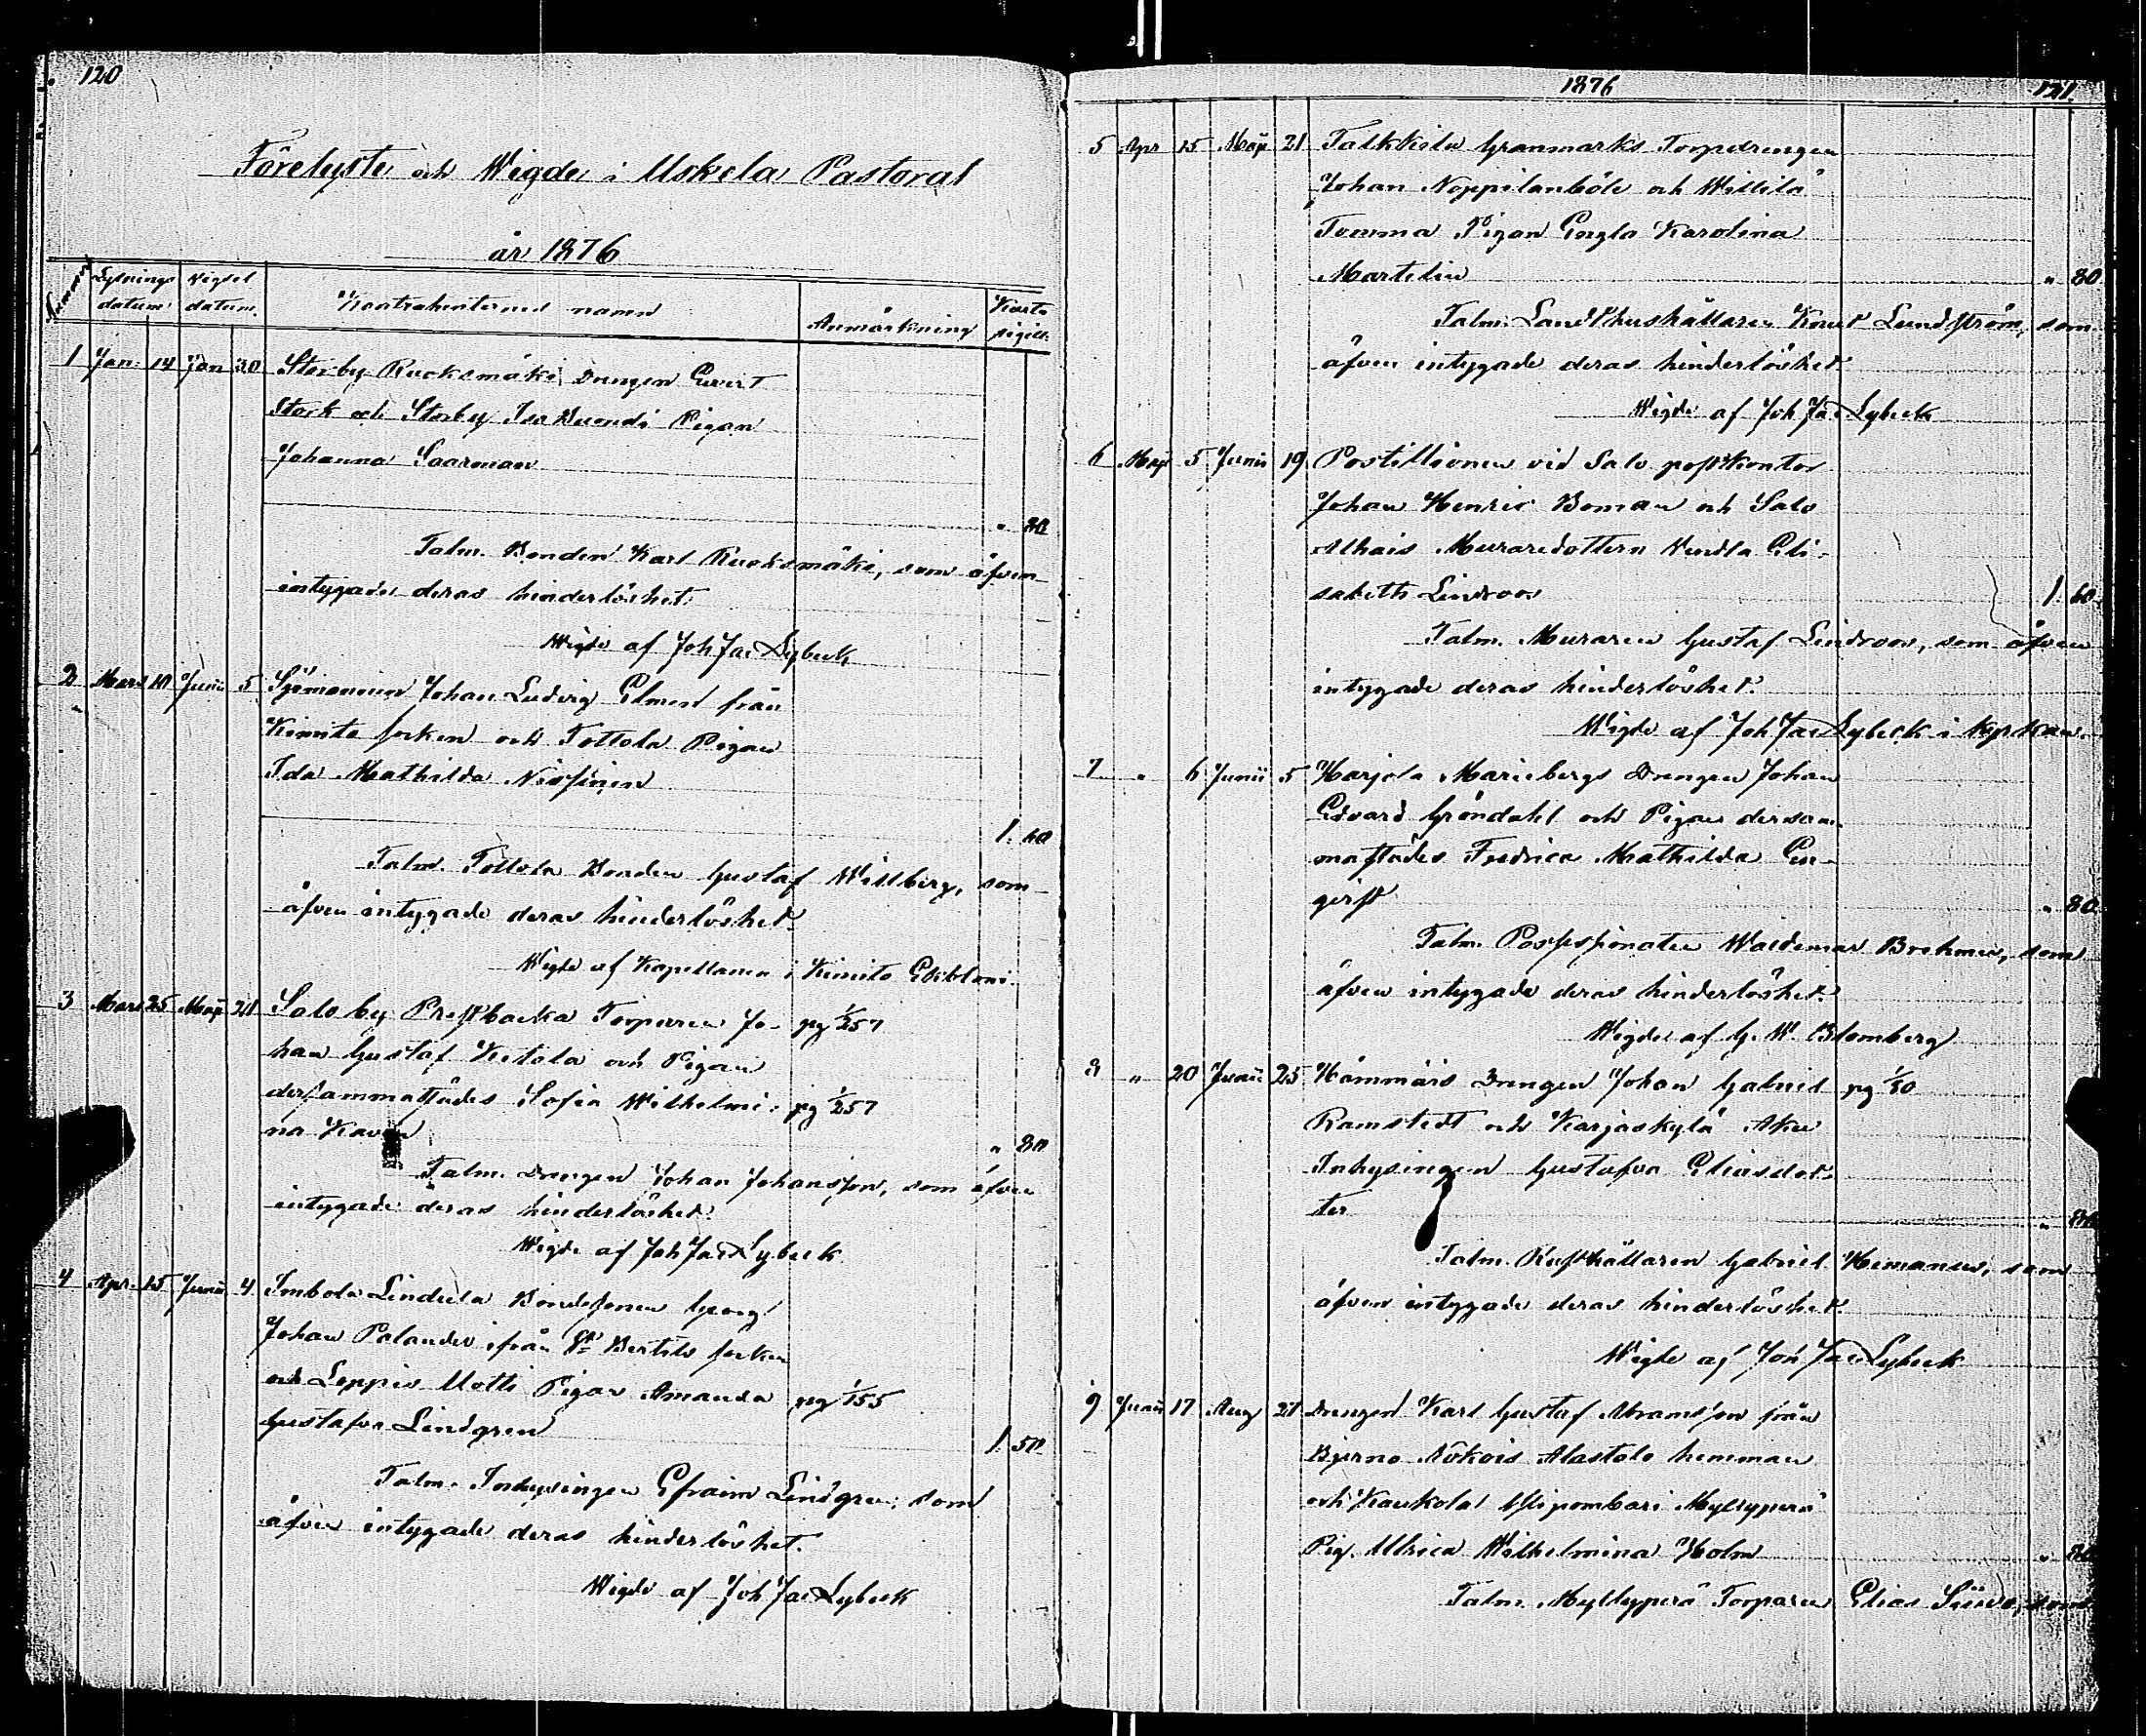 120
Förelyste och Wigde i Uskela Pastoral
år 1876
Lysnings datum
Vigsel datum.
Kontrahenternes namn
Anmärkning
Karta sigill.
1 Jan. 14 Jan 30 Storby Rucksmäki Drengen Evert
Stark och Storby Isa Buendi Pigan
Johanna Saarman
" 80
Talm. Bonden Karl Rucksmäki, som åfven
intygade deras hinderlöshet.
Wigde af Joh Jac Lybeck
2 Mars 10 Junii 5 Sjömannen Johan Ludvig Elmen från
Kimito socken och Tottola Pigan
Ida Mathilda Nissinen
1. 60
Talm. Tottola Bonden Gustaf Willberg, som
åfven intygade deras hinderlöshet.
Wigde af Kapellanen i Kimito
3 Mars 25 Maji 21 Salo by Prestbacka Torparen Jo- pg 1/257
han Gustaf Ketola och Pigan
dersammastädes Sofia Wilhelmi- pg 1/257
na
" 80
Talm. Drengen Johan Johansson, som åfven
intygade deras hinderlöshet.
Wigde af Joh Jac Lybeck
4 Apr. 15 Junii 4 Inbola Lindula Bondesonen Georg
Johan Palander ifrån St Bertils socken
och Leppis Uotti Pigan Amanda pg 1/155
Gustafva Lindgren
1. 50
Talm. Inhysingen Efraim Lindgren, som
åfven intygade deras hinderlöshet.
Wigde af Joh Jac Lybeck
1876
121.
5 Apr 15 Maji 21 Talkkila Granmarks Torpdrengen
Johan Noppilanböle och Willilä
Tomma Pigan Engla Karolina
Martelin
" 80
Talm. Landthushållaren Knut Lundström, som
åfven intygade deras hinderlöshet.
Wigde af Joh Jac Lybeck
6 Maji 5 Junii 19 Postillionen vid Salo postkontor
Johan Henric Boman och Salo
Alhais Muraredottern Vendla Eli-
sabeth Lindroos
1. 60
Talm. Muraren Gustaf Lindroos, som åfven
intygade deras hinderlöshet.
Wigde af Joh Jac Lybeck i Kyrkan.
7 " 6 Junii 5 Karjola Mariebergs Drengen Johan
Edvard Gröndahl och Pigan dersam-
mastädes Fredrica Mathilda En-
qvist
" 80
Talm. Possessionaten Waldemar Brehmer, som
åfven intygade deras hinderlöshet.
Wigde af G. W. Blomberg
8 " 20 Junii 25 Hämmäis Drengen Johan Gabriel pg 1/50
Ramstedt och Karjaskylä Aku
Inhysingen Gustafva Eliasdot-
ter
" 80
Talm. Rusthållaren Gabriel Hemanus, som
åfven intygade deras hinderlöshet.
Wigde af Joh Jac Lybeck
9 Junii 17 Aug 27 Drengen Karl Gustaf Abramsson från
Bjerno Nökois Alastalo hemman
och Kaukola Ylipombari Myllyperä
Pig. Ulrica Wilhelmina Holm
" 80
Talm. Myllyperä Torparen Elias, som